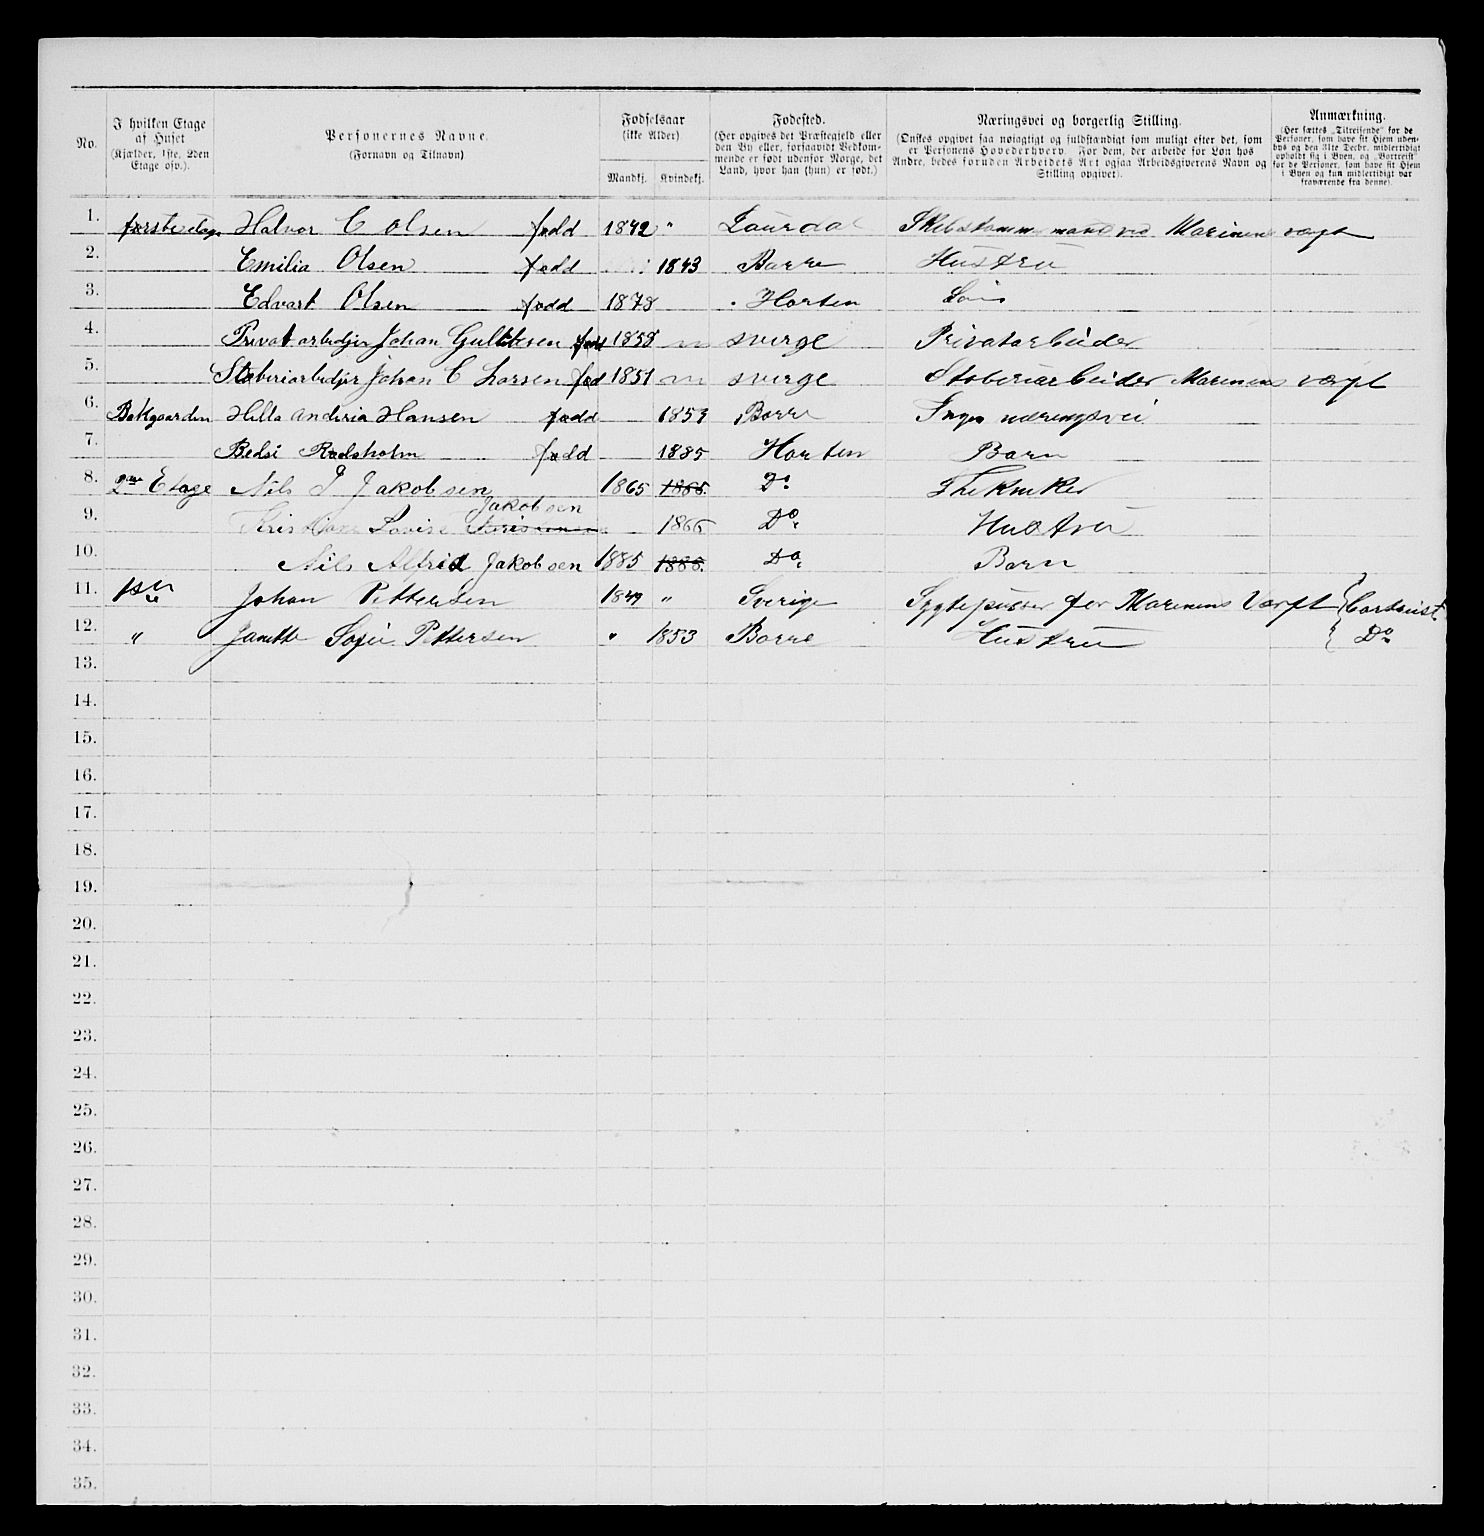 No.
I hvilken Etage
af Huset
(Kjælder, 1ste, 2den
Etage osv.).
Personernes Navne.
(Fornavn og Tilnavn)
Fødselsaar
(ikke Alder)
Mandkj. Kvindekj.
Fødested.
(Her opgives det Præstegjeld eller
den By eller, forsaavidt Vedkom-
mende er født udenfor Norge, det
Land, hvor han (hun) er født.)
Næringsvei og borgerlig Stilling.
(Ønskes opgivet saa nøiagtigt og fuldstændigt som muligt efter det, som
er Personens Hovederhverv. For dem, der arbeide for Løn hos
Andre, bedes foruden Arbeidets Art ogsaa Arbeidsgiverens Navn og
Stilling opgivet).
Anmærkning.
(Her sættes „Tilreisende“ for de
Personer, som have sit Hjem uden-
bys og den 31te Decbr. midlertidigt
opholdt sig i Byen, og „Bortreist“
for de Personer, som have sit Hjem
i Byen og kun midlertidigt var
fraværende fra denne).
1. første etage Halvor C Olsen fødd 1842 " Laurdal Skibstømmermand ved Marinens værft
2. Emilia Olsen fødd 1843 Borre Hustru
3. Edvart Olsen fødd 1878 Horten Søn
4. Privatarbeidjer Johan fød 1858 sverge Privatarbeider
5. Støberiarbedjer Johan C Larsen fød 1851 sverge Støberiarbeider Marinens værft
6. Bakgaarden Hilla Andiria Hansen fødd 1853 Borre Ingen næringsvei
7. Bedsi Rødsholm fødd 1885 Horten Barn
8. 2den Etage Nils J Jakobsen 1865 1865. Do
9. Louise Jakobsen 1866 Do. Hustru
10. Nils Alfrid Jakobsen 1885 1885. Do. Barn
11. 1ste Johan Pettersen 1849 " Sverige for Marinens Værft
12. " Janette Sofie Pettersen " 1853 Borre Hustru Do
13.
14.
15.
16.
17.
18.
19.
20.
21.
22.
23.
24.
25.
26.
27.
28.
29.
30.
31.
32.
33.
34.
35.